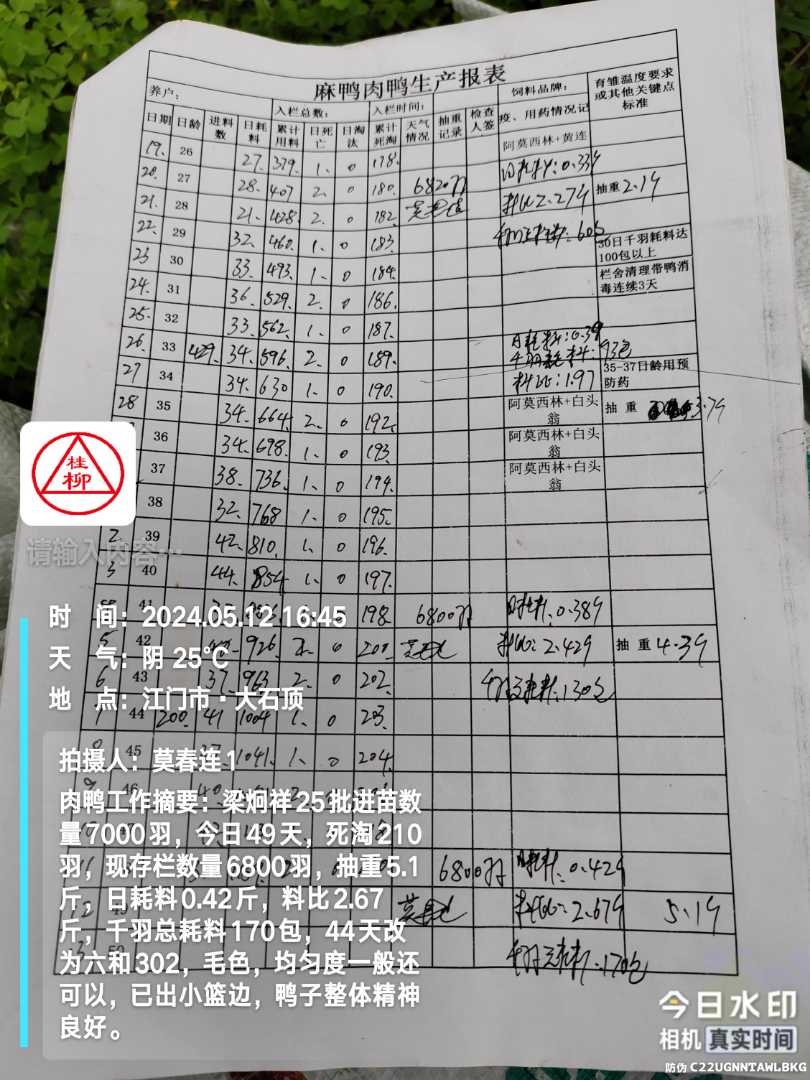 麻鸭肉鸭生产报表
养户: 入栏总数: 入栏时间: 饲料品牌: 育雏温度要求或其他关键点标准
日期 日龄 进料数 日耗料 累计用料 日死亡 日淘汰 累计死淘 天气情况 抽重记录 检查人签 疫、用药情况记
19. 26 27. 379. 1. 0 178. 阿莫西林+黄连
20. 27 28. 407 2. 0 180. 6820羽 日耗料:0.33斤
21. 28 21. 428. 2. 0 182. 料比2.27斤 抽重2.1斤
22. 29 32. 460. 1. 0 183.
23 30 33. 493. 1. 0 184. 30日千羽耗料达100包以上
24. 31 36. 529. 2. 0 186. 栏舍清理带鸭消毒连续3天
25. 32 33. 562. 1. 0 187.
26. 33 429. 34. 596. 2. 0 189. 日耗料:0.3斤
千羽耗料:93包
27 34 34. 630 1. 0 190. 料比:1.97 35-37日龄用预防药
28 35 34. 664. 2. 0 192. 阿莫西林+白头翁 抽重 3.7斤
36 34. 698. 1. 0 193. 阿莫西林+白头翁
37 38. 736. 1. 0 194. 阿莫西林+白头翁
38 32. 768 1. 0 195.
2. 39 42. 810. 1. 0 196.
3 40 44. 854 1. 0 197.
41 198. 6800羽 日耗料.0.38斤
5 42 926. 2. 0 200. 料比:2.42斤 抽重4.3斤
6 43 37. 963 2. 0 202. 千羽总耗料.130包
44 200. 41 1004 1. 0 203.
45 1041. 1. 0 204.
6800羽 日耗料.0.42斤
料比:2.67斤 5.1斤
千羽总耗料.170包
桂柳
请输入内容…
时 间:2024.05.12 16:45
天 气:阴 25℃
地 点:江门市·大石顶
拍摄人:莫春连1
肉鸭工作摘要:梁炯祥25批进苗数
量7000羽,今日49天,死淘210
羽,现存栏数量6800羽,抽重5.1
斤,日耗料0.42斤,料比2.67
斤,千羽总耗料170包,44天改
为六和302,毛色,均匀度一般还
可以,已出小篮边,鸭子整体精神
良好。
今日水印
相机 真实时间
防伪 C22UGNNTAWLBKG